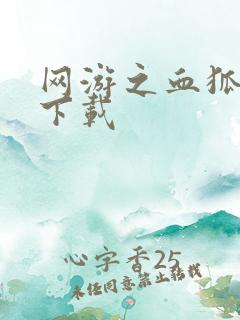 网游之血狐
下载
心字香25
未经同意禁止转载